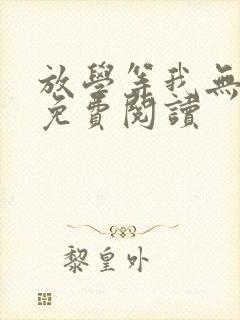 放學等我無
免費閱讀
黎皇外